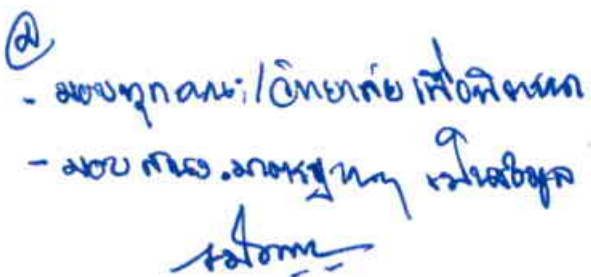 ๒
- มอบทุกคณะ/วิทยาลัย เพื่อพิจารณา
- มอบ สนง.มาตรฐานฯ เป็นข้อมูล